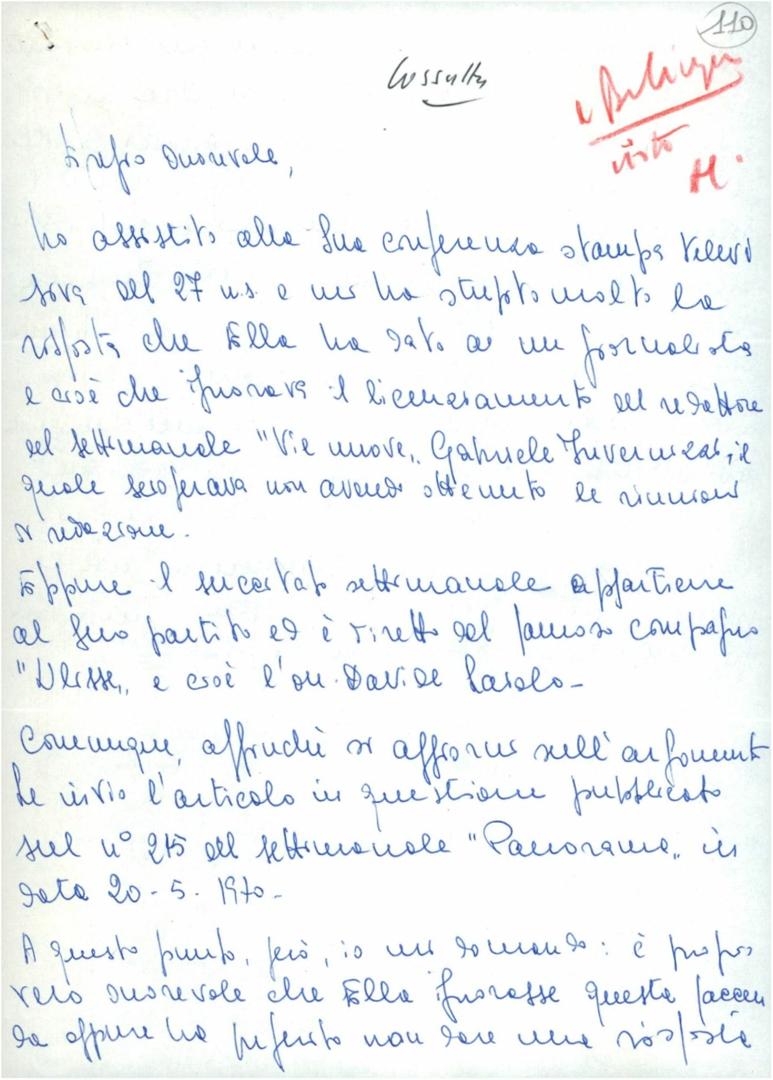 110
Cossutta
a Berlinguer
visto
M.
Egregio Onorevole,
ho assistito alla Sua conferenza stampa televi
siva del 27 u.s. e mi ha stupito molto la
risposta che Ella ha dato ad un giornalista
e cioè che ignorava il licenziamento del redattore
del settimanale "Vie nuove„ Gabriele Invernizzi, il
quale scioperava non avendo ottenuto le riunioni
di redazione.
Eppure il succitato settimanale appartiene
al Suo partito ed è diretto dal famoso compagno
"Ulisse„ e cioè l'on. Davide Lajolo -
Comunque, affinchè si aggiorni sull'argomento
Le invio l'articolo in questione pubblicato
sul n° 215 del settimanale "Panorama„ in
data 20 - 5 - 1970 -
A questo punto, però, io mi domando: è proprio
vero onorevole che Ella ignorasse questa faccen
da oppure ha preferito non dare una risposta